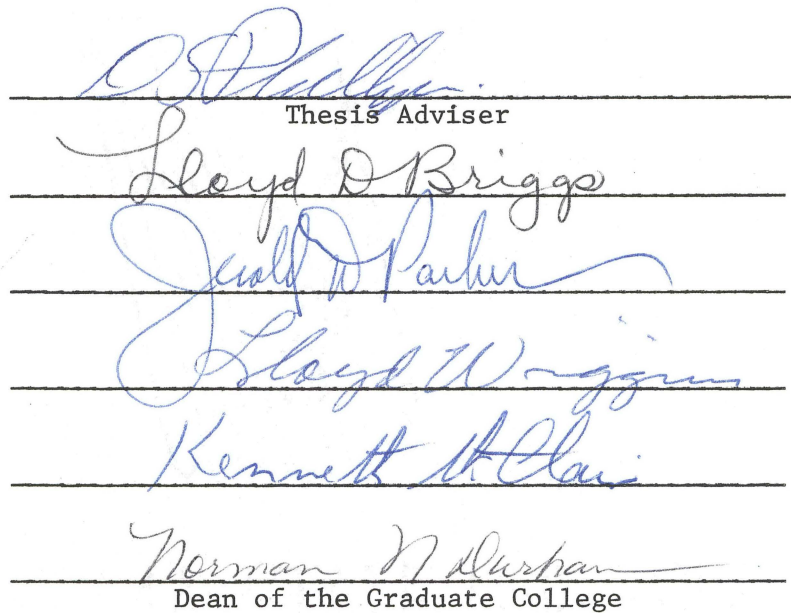 D S Phillips
Thesis Adviser
Lloyd D Briggs
Jerald D Parker
Lloyd Wiggins
Kenneth St Clair
Norman N Durham
Dean of the Graduate College